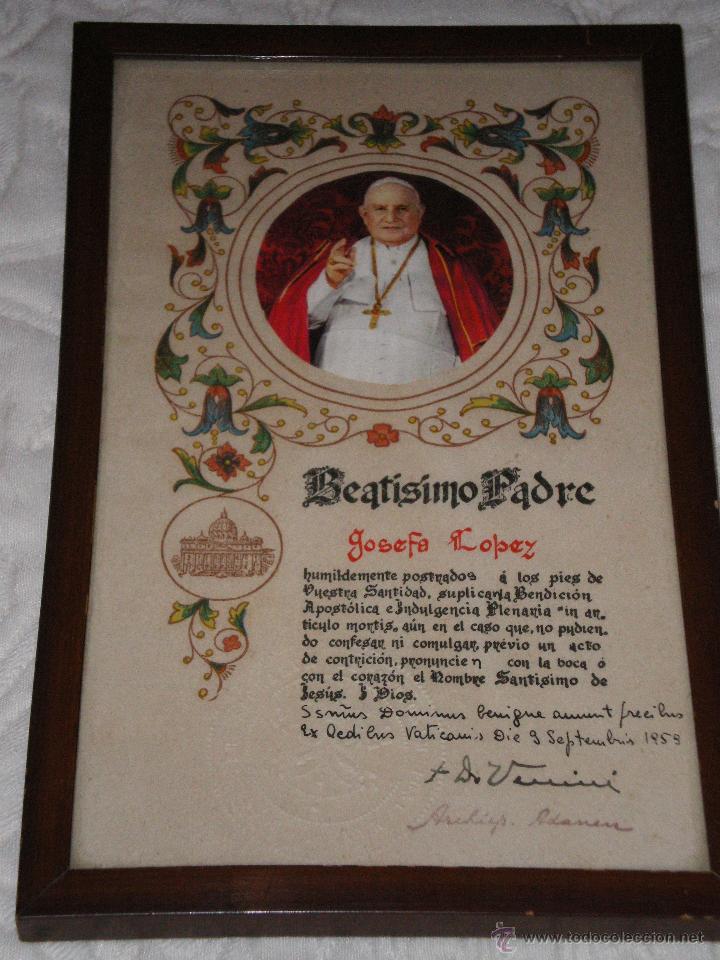 Beatisimo Padre
Josefa Lopez
humildemente postrados á los pies de
Vuestra Santidad, suplican la Bendición
Apostólica e Indulgencia Plenaria "in ar-
ticulo mortis, aún en el caso que, no pudien-
do confesar ni comulgar, previo un acto
de contrición, pronuncien con la boca ó
con el corazón el Nombre Santisimo de
Jesús. J Dios.
Ssmus Dominus benigne annuit precibus
Ex Aedibus Vaticanis Die 9 Septembris 1959
+ D. Venini
Archiep. Adanen
www.todocoleccion.net